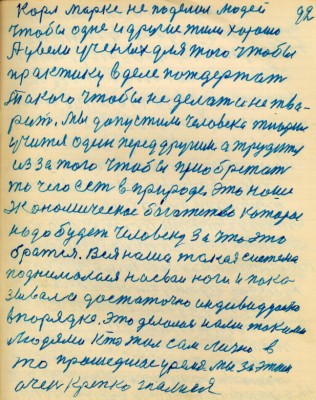 Карл Маркс не поделил людей 92
чтобы одне и другие жили хорошо
А увели ученых для того чтобы
практику в деле потдержат
такого чтобы не делат и не тва-
рит. Мы допустим человека
учится один перед другим а трудится
из за того чтобы приобретат
то чего ест в природе. Это наше
Экономическое богатство которое
надо будет человеку за что это
братся. Вся наша такая система
поднималася на сваи ноги и пока
зывала достаточно индивидуально
в порядке. Это делалося нами такими
людями кто жил сам лично в
то прошедшее время мы за этим
очен крепко гналися